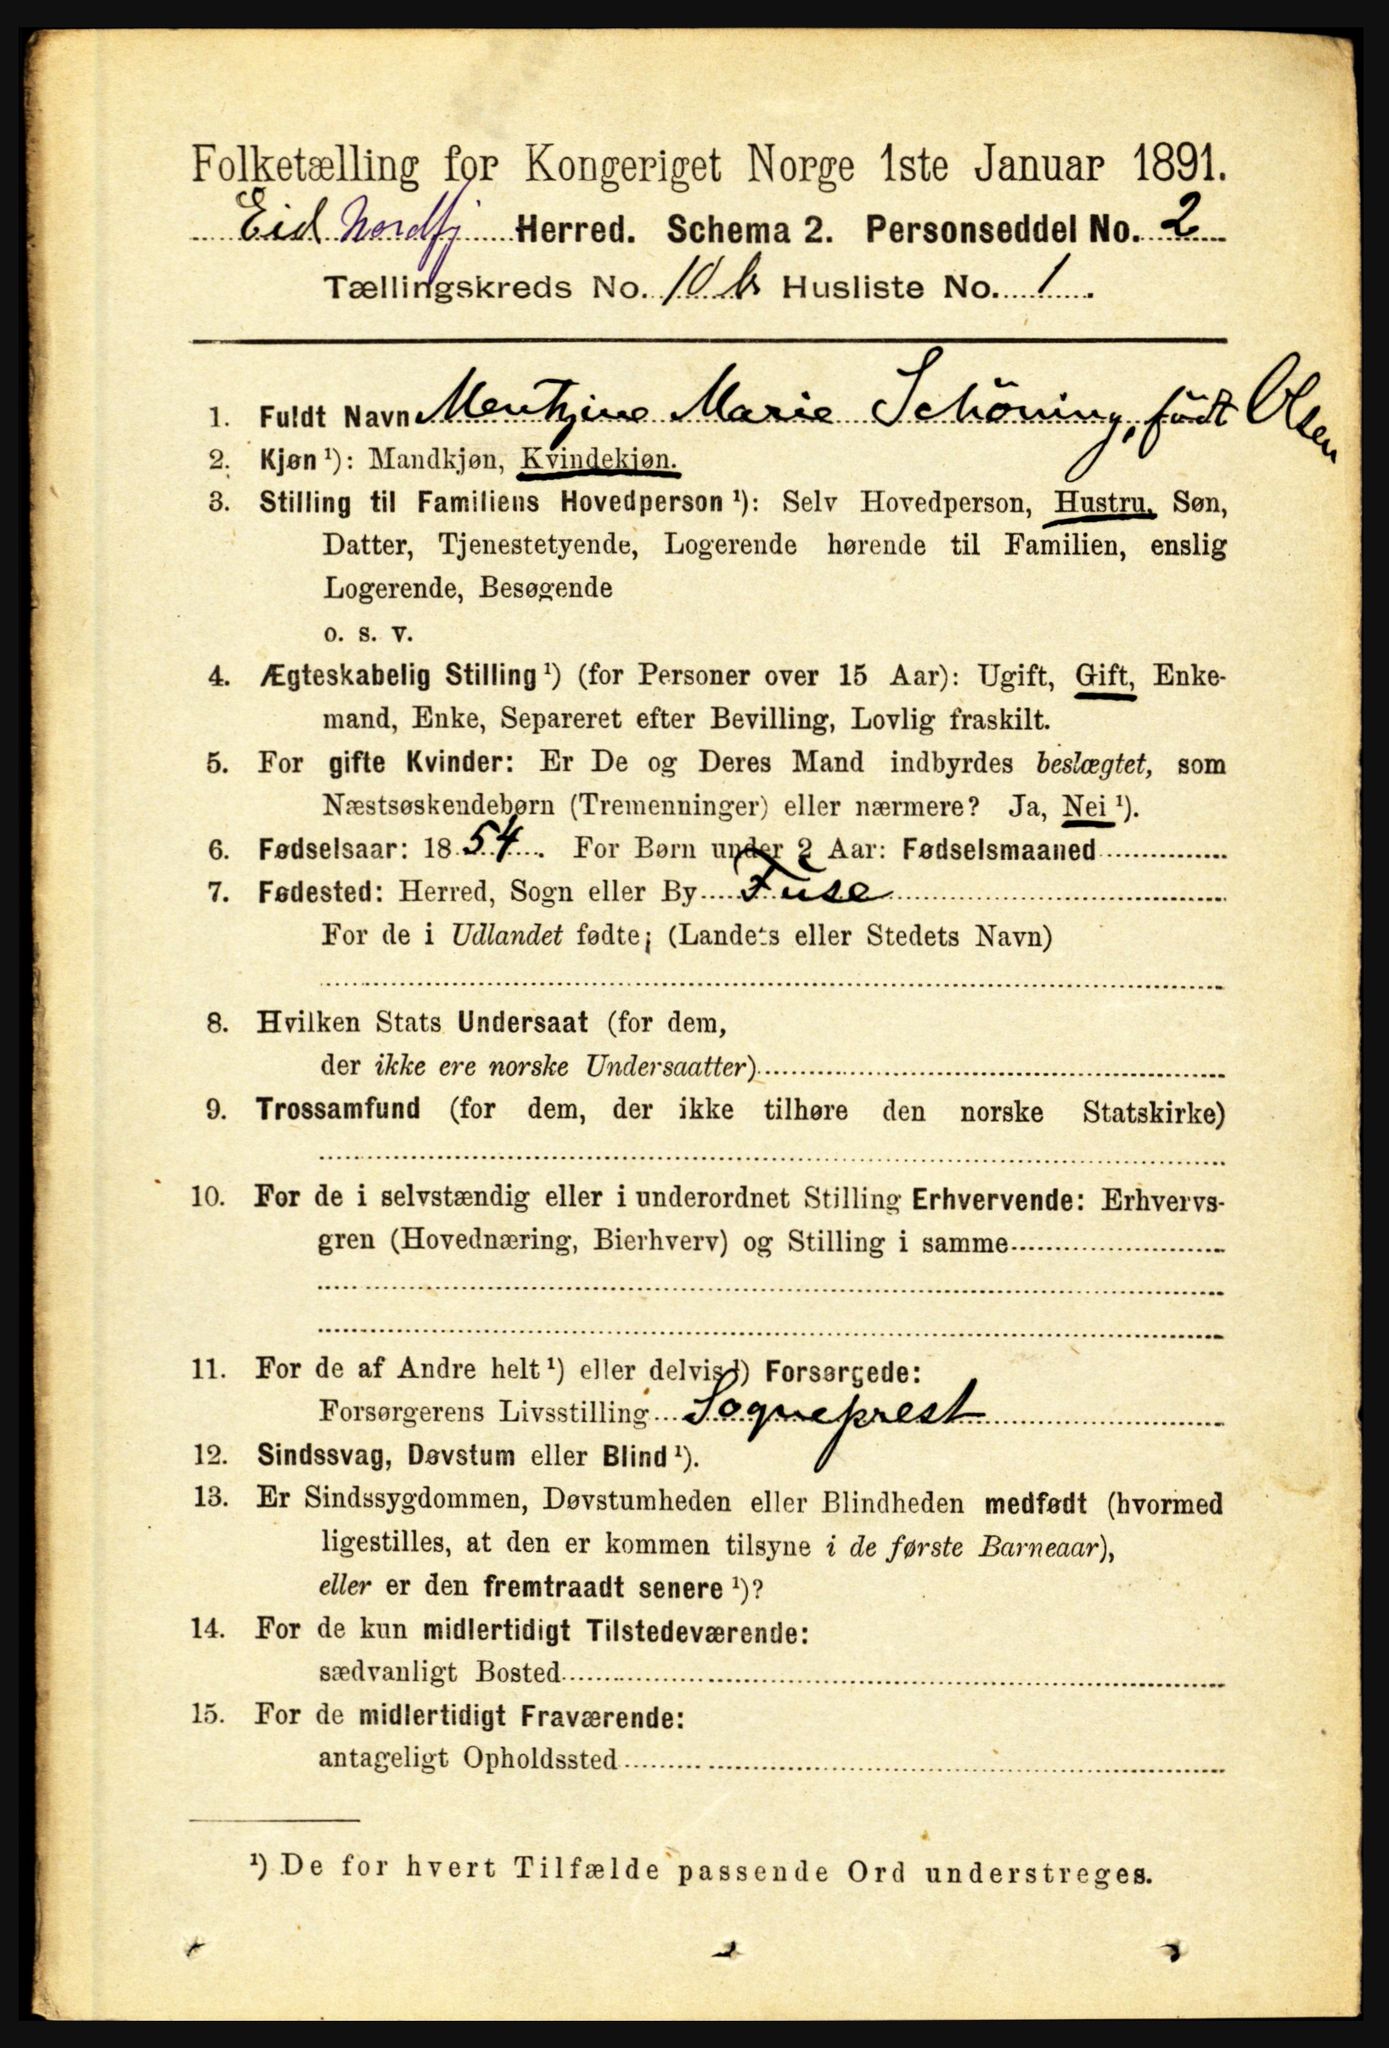 Folketælling for Kongeriget Norge 1ste Januar 1891.
Eid Nordfj Herred. Schema 2. Personseddel No. 2
Tællingskreds No. 10 b Husliste No. 1
1. Fuldt Navn Mentzine Marie Schöning, född Olsen
2. Kjøn ¹): Mandkjøn, Kvindekjøn.
3. Stilling til Familiens Hovedperson ¹): Selv Hovedperson, Hustru, Søn,
Datter, Tjenestetyende, Logerende hørende til Familien, enslig
Logerende, Besøgende
o. s. v.
4. Ægteskabelig Stilling ¹) (for Personer over 15 Aar): Ugift, Gift, Enke-
mand, Enke, Separeret efter Bevilling, Lovlig fraskilt.
5. For gifte Kvinder: Er De og Deres Mand indbyrdes beslægtet, som
Næstsøskendebørn (Tremenninger) eller nærmere? Ja, Nei ¹).
6. Fødselsaar: 1854. For Børn under 2 Aar: Fødselsmaaned
7. Fødested: Herred, Sogn eller By Fuse
For de i Udlandet fødte; (Landets eller Stedets Navn)
8. Hvilken Stats Undersaat (for dem,
der ikke ere norske Undersaatter)
9. Trossamfund (for dem, der ikke tilhøre den norske Statskirke)
10. For de i selvstændig eller i underordnet Stilling Erhvervende: Erhvervs-
gren (Hovednæring, Bierhverv) og Stilling i samme
11. For de af Andre helt ¹) eller delvis ¹) Forsørgede:
Forsørgerens Livsstilling Sogneprest
12. Sindssvag, Døvstum eller Blind ¹).
13. Er Sindssygdommen, Døvstumheden eller Blindheden medfødt (hvormed
ligestilles, at den er kommen tilsyne i de første Barneaar),
eller er den fremtraadt senere ¹)?
14. For de kun midlertidigt Tilstedeværende:
sædvanligt Bosted
15. For de midlertidigt Fraværende:
antageligt Opholdssted
¹) De for hvert Tilfælde passende Ord understreges.